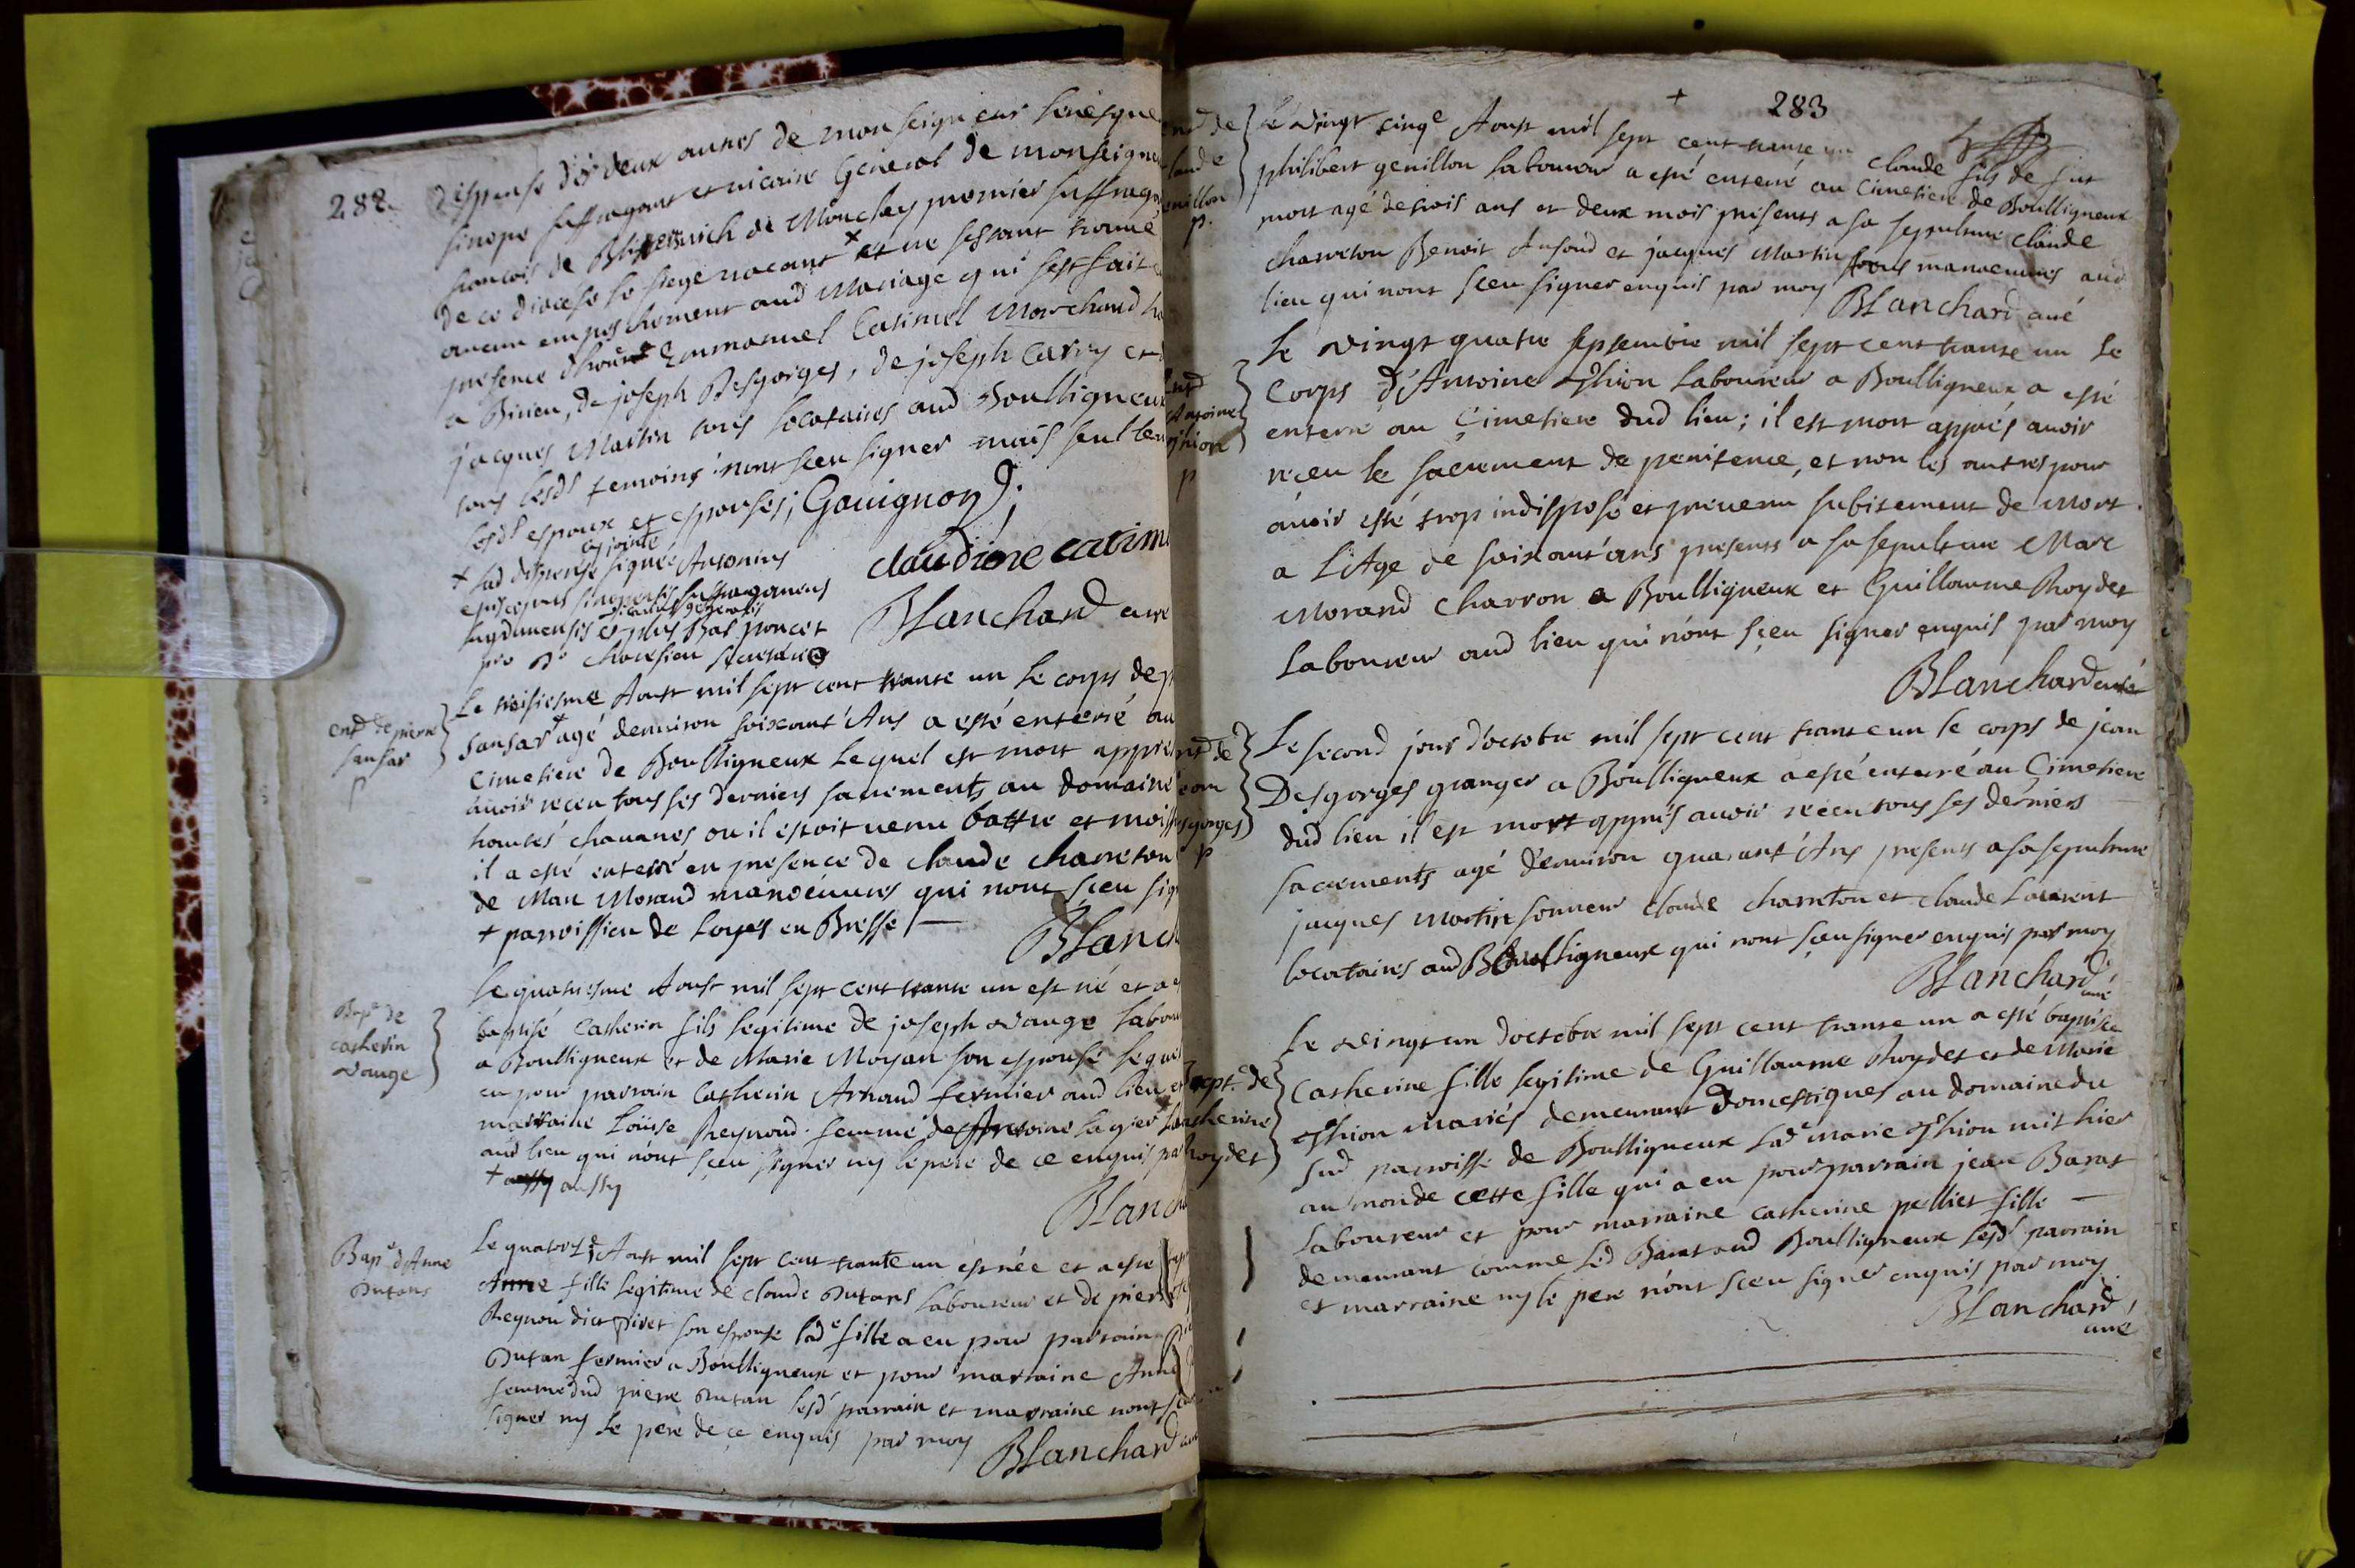 282
dispense des deux autres de monseigneur l'evesque
sinope suffragant et vicaire General de monseigne
francois de de Monchay premier suffrag
de ce diocese le siege vacant + et ne sestant trouvé
aucun empeschement aud Mariage qui sest fait
presence d'honte Emmanuel Catimel Marchand
a Birieu, de joseph Desgorges, de joseph Carry et
jacques Martin tous locataires aud Boulligneux
tous lesds temoins n'ont sceu signer mais seul
lesds espoux et espouses; Gavignon
cy jointe
+ lad dispense signée Antonius
episcopus sinopensis suffraganeus
vicarius generalis
lugdunensis et plus Bas poncet
pro Do chaussieu secretaire
claudine catim
Blanchard curé
entt de pierre
sansar
p
Le troisiesme Aoust mil sept cent trante un le corps de p
sansar + agé denuiron soixant'Ans a esté enterré au
Cimetiere de Boulligneux lequel est mort appres
auoir receu tous ses derniers sacrements au domaine
chauanes ou il estoit uenu battre et moiss
il a esté enterré en presence de claude charreton
de Marc Morand manoeuures qui nont sceu sig
+ parroissien de Loyes en Bresse
Blanch
Bape de
catherin
vauge
Le quatriesme Aoust mil sept cent trante un est né et a e
baptisé Catherin fils legitime de joseph vauge labou
a Boulligneux et de Marie Moyan son espouse lequel
eu pour parrain Catherin Arnaud fermier aud lieu et
marraine Louise Reynoud femme de Antoine Lagier
aud lieu qui n'ont sceu signer ny le pere de ce enquis pa
+ aussy
Blanch
Bape d'Anne
Dutans
Le quatorze Aoust mil sept cent trante un est née et a esté
Anne fille legitime de claude Dutans laboureur et de pier
Reynou dict pivet son espouse lade fille a eu pour parrain
Dutan fermier a Boulligneux et pour marraine Anne
femme dud pierre Dutan lesd parrain et marraine nont sceu
signer ny le pere de ce enquis par moy
Blanchard
283
Le vingt cinqe Aoust mil sept cent trante un claude fils de fut
philibert genillon laboureur a esté enterré au Cimetiere de Boulligneux
mort agé de trois ans et deux mois presents a sa sepulture claude
charreton Benoit et jacques Martin tous manoeuures aud
lieu qui nont sceu signer enquis par moy
Blanchard curé
Antoine
thion
p
Le vingt quatre septembre mil sept cent trante un le
corps d'Antoine thion laboureur a Boulligneux a esté
enterré au Cimetiere dud lieu; il est mort appres auoir
receu le sacrement de penitence, et non les autres pour
auoir esté trop indisposé et preuenu subitement de mort
a l'Age de soixant'ans presents a sa sepulture Marc
Morand charron a Boulligneux et Guillaume Roydet
laboureur aud lieu qui n'ont sceu signer enquis par moy
Blanchard curé
p
Le second jour d'octobre mil sept cent trante un le corps de jean
Desgorges granger a Boulligneux a esté enterré au Cimetiere
dud lieu il est mort appres auoir receu tous ses derniers
sacrements agé d'enuiron quarant'Ans presents a sa sepulture
jacques Martin sonneur claude charreton et claude Laurent
locataires aud Boulligneux qui nont sceu signer enquis par moy
Blanchard
curé
Le vingt un d'octobre mil sept cent trante un a esté baptisée
Catherine fille legitime de Guillaume Roydet et de Marie
thion mariés demeurant domestiques au domaine du
sud parroisse de Boulligneux lade marie thion mit hier
au monde cette fille qui a eu pour parrain jean Barat
laboureur et pour marraine catherine pelliet fille
demeurant comme led Barat aud Boulligneux lesd parrain
et marraine ny le pere n'ont sceu signer enquis par moy
Blanchard
curé